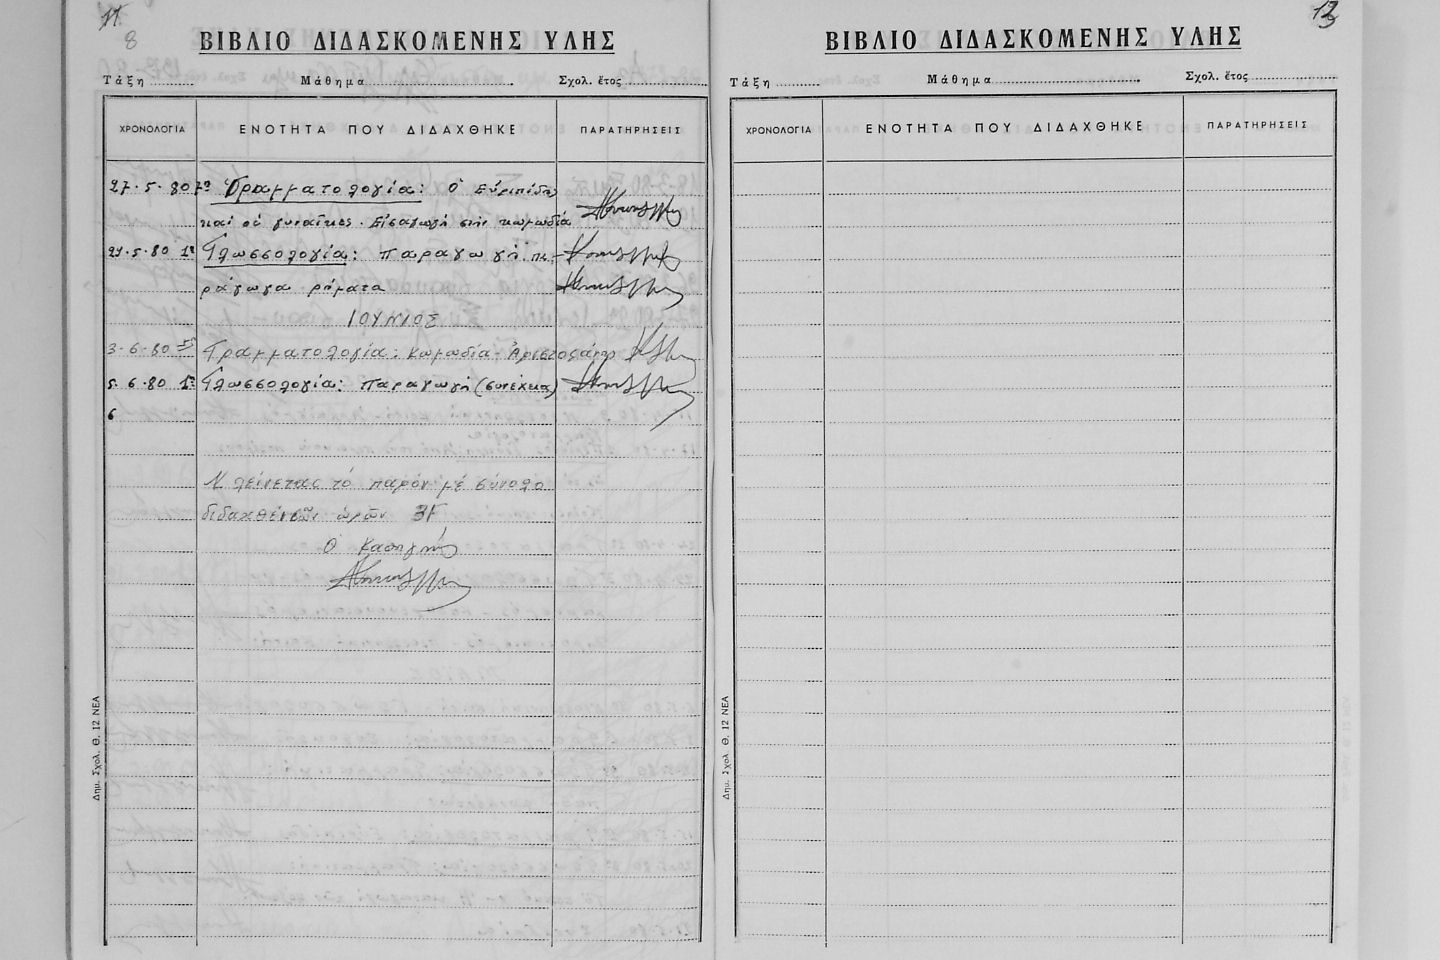 11
8
ΒΙΒΛΙΟ ΔΙΔΑΣΚΟΜΕΝΗΣ ΥΛΗΣ
Τάξη Μάθημα Σχολ. ἔτος
ΧΡΟΝΟΛΟΓΙΑ ΕΝΟΤΗΤΑ ΠΟΥ ΔΙΔΑΧΘΗΚΕ ΠΑΡΑΤΗΡΗΣΕΙΣ
27.5.80 7η Γραμματολογία: Ὁ Εὐριπίδης
καί οἱ γυναῖκες. Εἰσαγωγή στήν κωμωδία
29.5.80 1η Γλωσσολογία: παραγωγή πα-
ράγωγα ρήματα
ΙΟΥΝΙΟΣ
3-6-80 Γραμματολογία: Κωμωδία - Ἀριστοφάνης
5.6.80 1η Γλωσσολογία: παραγωγή (συνέχεια)
6
Κλείνεται τό παρόν μέ σύνολο
διδαχθέντων ὡρῶν
Ὁ Καθηγητής
Δημ. Σχολ. Θ, 12 ΝΕΑ
ΒΙΒΛΙΟ ΔΙΔΑΣΚΟΜΕΝΗΣ ΥΛΗΣ
Τάξη Μάθημα Σχολ. ἔτος
ΧΡΟΝΟΛΟΓΙΑ ΕΝΟΤΗΤΑ ΠΟΥ ΔΙΔΑΧΘΗΚΕ ΠΑΡΑΤΗΡΗΣΕΙΣ
Δημ. Σχολ. Θ, 12 ΝΕΑ